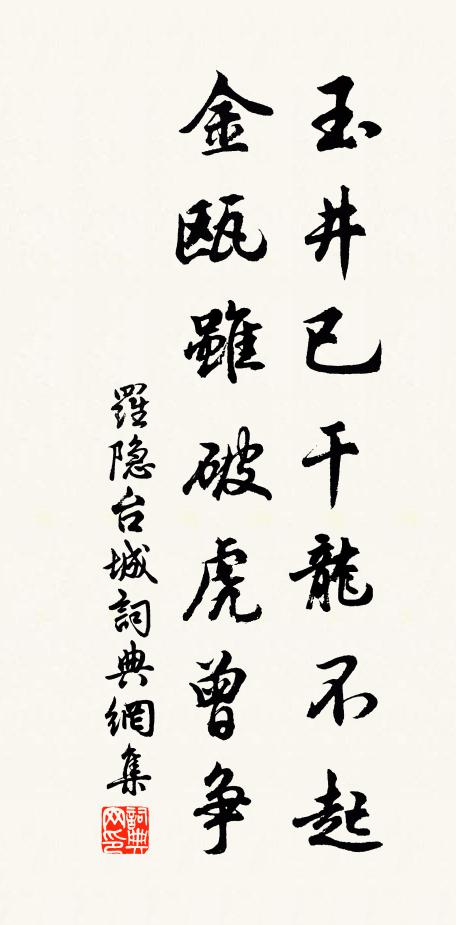 玉井已干龍不起
金瓯雖破虎曾争
羅隐台城詞典網集
詞典网印